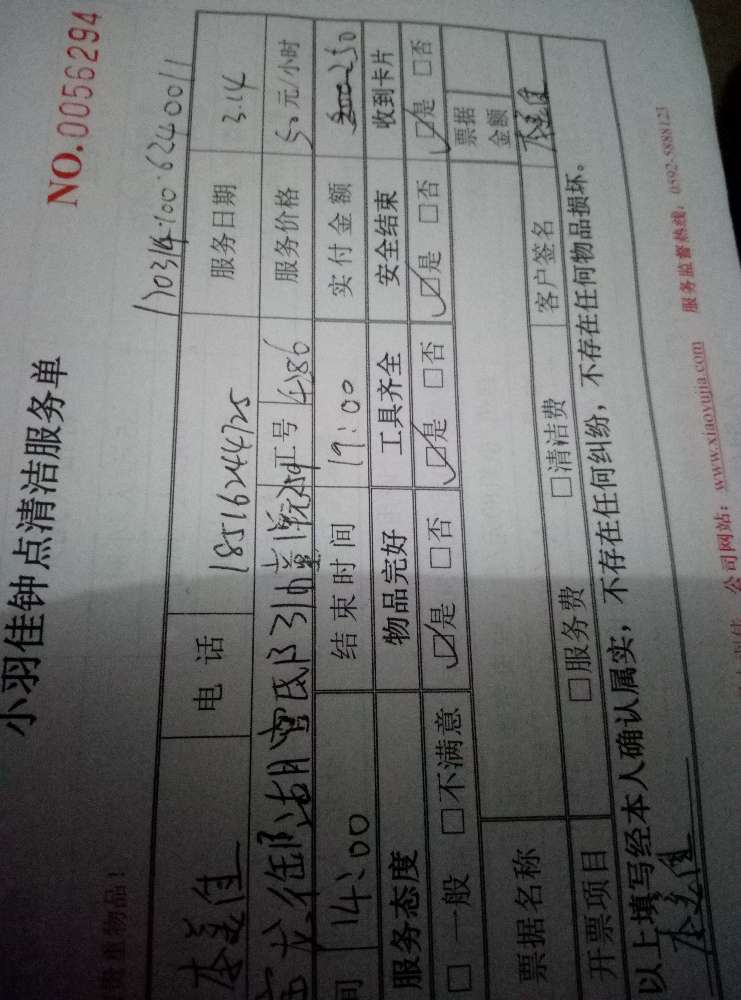 小羽佳钟点清洁服务单
NO.0056294
贵重物品！
170314·100·6240011
电 话 18516244725 服务日期 3.14
工号 4286 服务价格 50元/小时
间 14:00 结束时间 17:00 实付金额 250
服务态度 物品完好 工具齐全 安全结束 收到卡片
□ 一般 □不满意 ☑是 □否 ☑是 □否 ☑是 □否 ☑是 □否
票据名称 票据金额
开票项目 □服务费 □清洁费 客户签名
以上填写经本人确认属实，不存在任何纠纷，不存在任何物品损坏。
公司网站：www.xiaoyujia.com 服务监督热线：0592-5888123